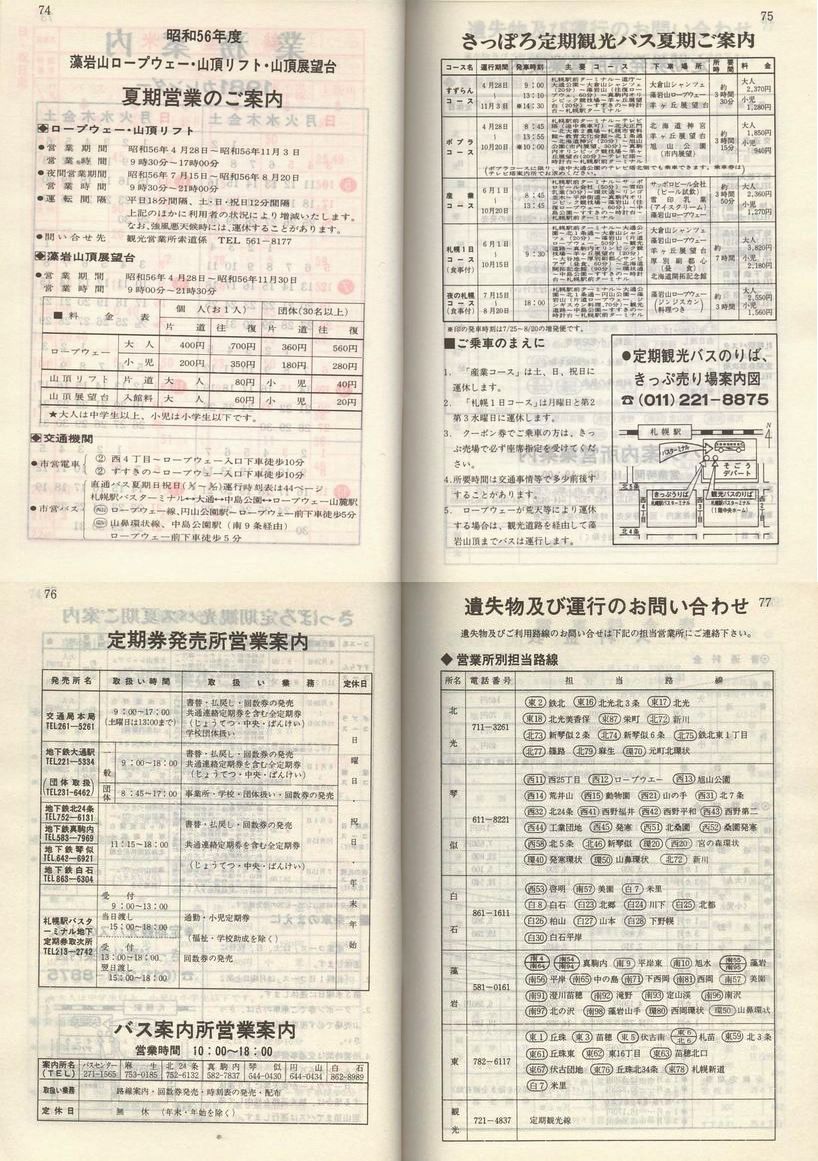 74
昭和56年度
藻岩山ロープウェー・山頂リフト・山頂展望台
夏期営業のご案内
ロープウェー・山頂リフト
●営業期間 昭和56年4月28日〜昭和56年11月3日
営業時間 9時30分〜17時00分
●夜間営業期間 昭和56年7月15日〜昭和56年8月20日
営業時間 9時30分〜21時00分
●運転間隔 平日18分間隔、土・日・祝日12分間隔
上記のほかに利用者の状況により増減いたします。
なお、強風悪天候時には、運休することがあります。
●問い合せ先 観光営業所業道係 TEL 561-8177
藻岩山頂展望台
●営業期間 昭和56年4月28日〜昭和56年11月30日
営業時間 9時00分〜21時30分
■料金表 個人(お1人) 団体(30名以上)
片道 往復 片道 往復
ロープウェー 大人 400円 700円 360円 560円
小児 200円 350円 180円 280円
山頂リフト 片道 大人 80円 小児 40円
山頂展望台 入館料 大人 60円 小児 20円
★大人は中学生以上、小児は小学生以下です。
交通機関
●市営電車 ② 西4丁目〜ロープウェー入口下車徒歩10分
② すすきの〜ロープウェー入口下車徒歩10分
直通バス夏期日祝日 運行時刻表は44ページ
●市営バス 札幌駅バスターミナル↔大通↔中島公園↔ロープウェー山麓駅
ロープウェー線、円山公園駅〜ロープウェー前下車徒歩5分
山鼻環状線、中島公園駅(南9条経由)
ロープウェー前下車徒歩5分
75
さっぽろ定期観光バス夏期ご案内
コース名 運行期間 発車時刻 主要コース 下車場所 所要時間 料金
すずらんコース 4月28日〜11月3日 9:00 13:10 ※14:30 大倉山シャンツェ 藻岩山ロープウェー 羊ヶ丘展望台 約3時間30分 大人2,370円 小児1,280円
ポプラコース 4月28日〜10月20日 8:45 13:55 ※10:00 北海道神宮 羊ヶ丘展望台 旭山公園(市内展望) 約3時間15分 大人1,850円 小児940円
産業コース 6月1日〜10月20日 8:45 13:45 サッポロビール会社(ビール試飲) 雪印乳業(アイスクリーム) 藻岩山ロープウェー 約3時間50分 大人2,360円 小児1,270円
札幌1日コース(食事付) 6月1日〜10月15日 9:30 大倉山シャンツェ 藻岩山ロープウェー 羊ヶ丘展望台 厚別副都心(昼食) 北海道開拓記念館 約7時間 大人3,820円 小児2,180円
夜の札幌コース(食事付) 7月15日〜8月20日 18:00 藻岩山ロープウェー(ジンジスカン)料理つき 約3時間 大人2,550円 小児1,560円
※印の発車時刻は7/25〜8/20の増発便です。
■ご乗車のまえに
1. 「産業コース」は土、日、祝日に
運休します。
2. 「札幌1日コース」は月曜日と第2
第3水曜日に運休します。
3. クーポン券でご乗車の方は、きっ
ぷ売場で必ず座席指定を受けてくだ
さい。
4.所要時間は交通事情等で多少前後す
することがあります。
5. ロープウェーが荒天等により運休
する場合は、観光道路を経由して藻
岩山頂までバスは運行します。
●定期観光バスのりば、
きっぷ売り場案内図
☎(011)221-8875
札幌駅
N
バスターミナル
そごうデパート
北5条
きっぷうりば
札幌駅バスターミナル
観光バスのりば
札幌駅バスターミナル
(1階中央ホーム)
西4丁目
西3丁目
西2丁目
76
定期券発売所営業案内
発売所名 取扱い時間 取扱い業務 定休日
交通局本局 TEL261-5261 9:00〜17:00 (土曜日は13:00まで) 書替・払戻し・回数券の発売
共通連絡定期券を含む全定期券
(じょうてつ・中央・ばんけい)
学校団体扱い
地下鉄大通駅 TEL221-5334 一般 9:00〜18:00 書替・払戻し・回数券の発売
共通連絡定期券を含む全定期券
(じょうてつ・中央・ばんけい)
(団体取扱 TEL231-6462) 団体 8:45〜17:00 事業所・学校・団体扱い・回数券の発売
地下鉄北24条 TEL752-6131
地下鉄真駒内 TEL583-7969
地下鉄琴似 TEL642-6921
地下鉄白石 TEL863-6304
11:15〜18:00
書替・払戻し・回数券の発売
共通連絡定期券を含む全定期券
(じょうてつ・中央・ばんけい)
札幌駅バスターミナル地下定期券取次所 TEL213-2742
受付 9:00〜13:00
当日渡し 15:00〜18:00
受付 13:00〜18:00
翌日渡し 15:00〜18:00
通勤・小児定期券
(福祉・学校助成を除く)
回数券の発売
日曜日・祝日・年末年始
バス案内所営業案内
営業時間 10:00〜18:00
案内所名(TEL) バスセンター 271-1565 麻生 753-0185 北24条 752-6132 真駒内 582-7837 琴似 644-0430 円山 644-0434 白石 862-8989
取扱い業務 路線案内・回数券発売・時刻表の発売・配布
定休日 無休(年末・年始を除く)
77
遺失物及び運行のお問い合わせ
遺失物及びご利用路線のお問い合せは下記の担当営業所にご連絡下さい。
◆営業所別担当路線
所名 電話番号 担当路線
北光 711-3261
東2 鉄北 東16 北光北3条 東17 北光
東18 北光美香保 東87 栄町 北72 新川
北73 新琴似2条 北74 新琴似6条 北75 鉄北東1丁目
北77 篠路 北79 麻生 環70 元町北環状
琴似 611-8221
西11 西25丁目 西12 ロープウエー 西13 旭山公園
西14 荒井山 西15 動物園 西21 山の手 西31 北7条
西32 北24条 西41 西野福井 西42 西野平和 西43 西野第二
西44 工業団地 西45 発寒 西51 北桑園 西52 桑園発寒
西58 北5条 北46 新琴似 環20 西20 宮の森環状
環40 発寒環状 環50 山鼻環状 北72 新川
白石 861-1611
西53 啓明 南57 美園 白7 米里
白8 白石 白23 北郷 白24 川下 白25 北都
白26 柏山 白27 山本 白28 下野幌
白30 白石平岸
藻岩 581-0161
南4 南64 南54 南94 真駒内 南9 平岸東 南10 旭水 南55 南95 藻岩
南56 平岸 南65 中の島 南71 下西岡 南81 西岡 南57 美園
南91 澄川苗穂 南92 滝野 南93 定山渓 南96 南沢
南97 北の沢 南98 藻岩山手 環80 西岡環状 環50 山鼻環状
東 782-6117
東1 丘珠 東3 苗穂 東5 伏古南 東6 北6 札苗 東59 北3条
東61 丘珠東 東62 東16丁目 東63 苗穂北口
東67 伏古団地 東76 丘珠北34条 東78 札幌新道
白7 米里
観光 721-4837 定期観光線